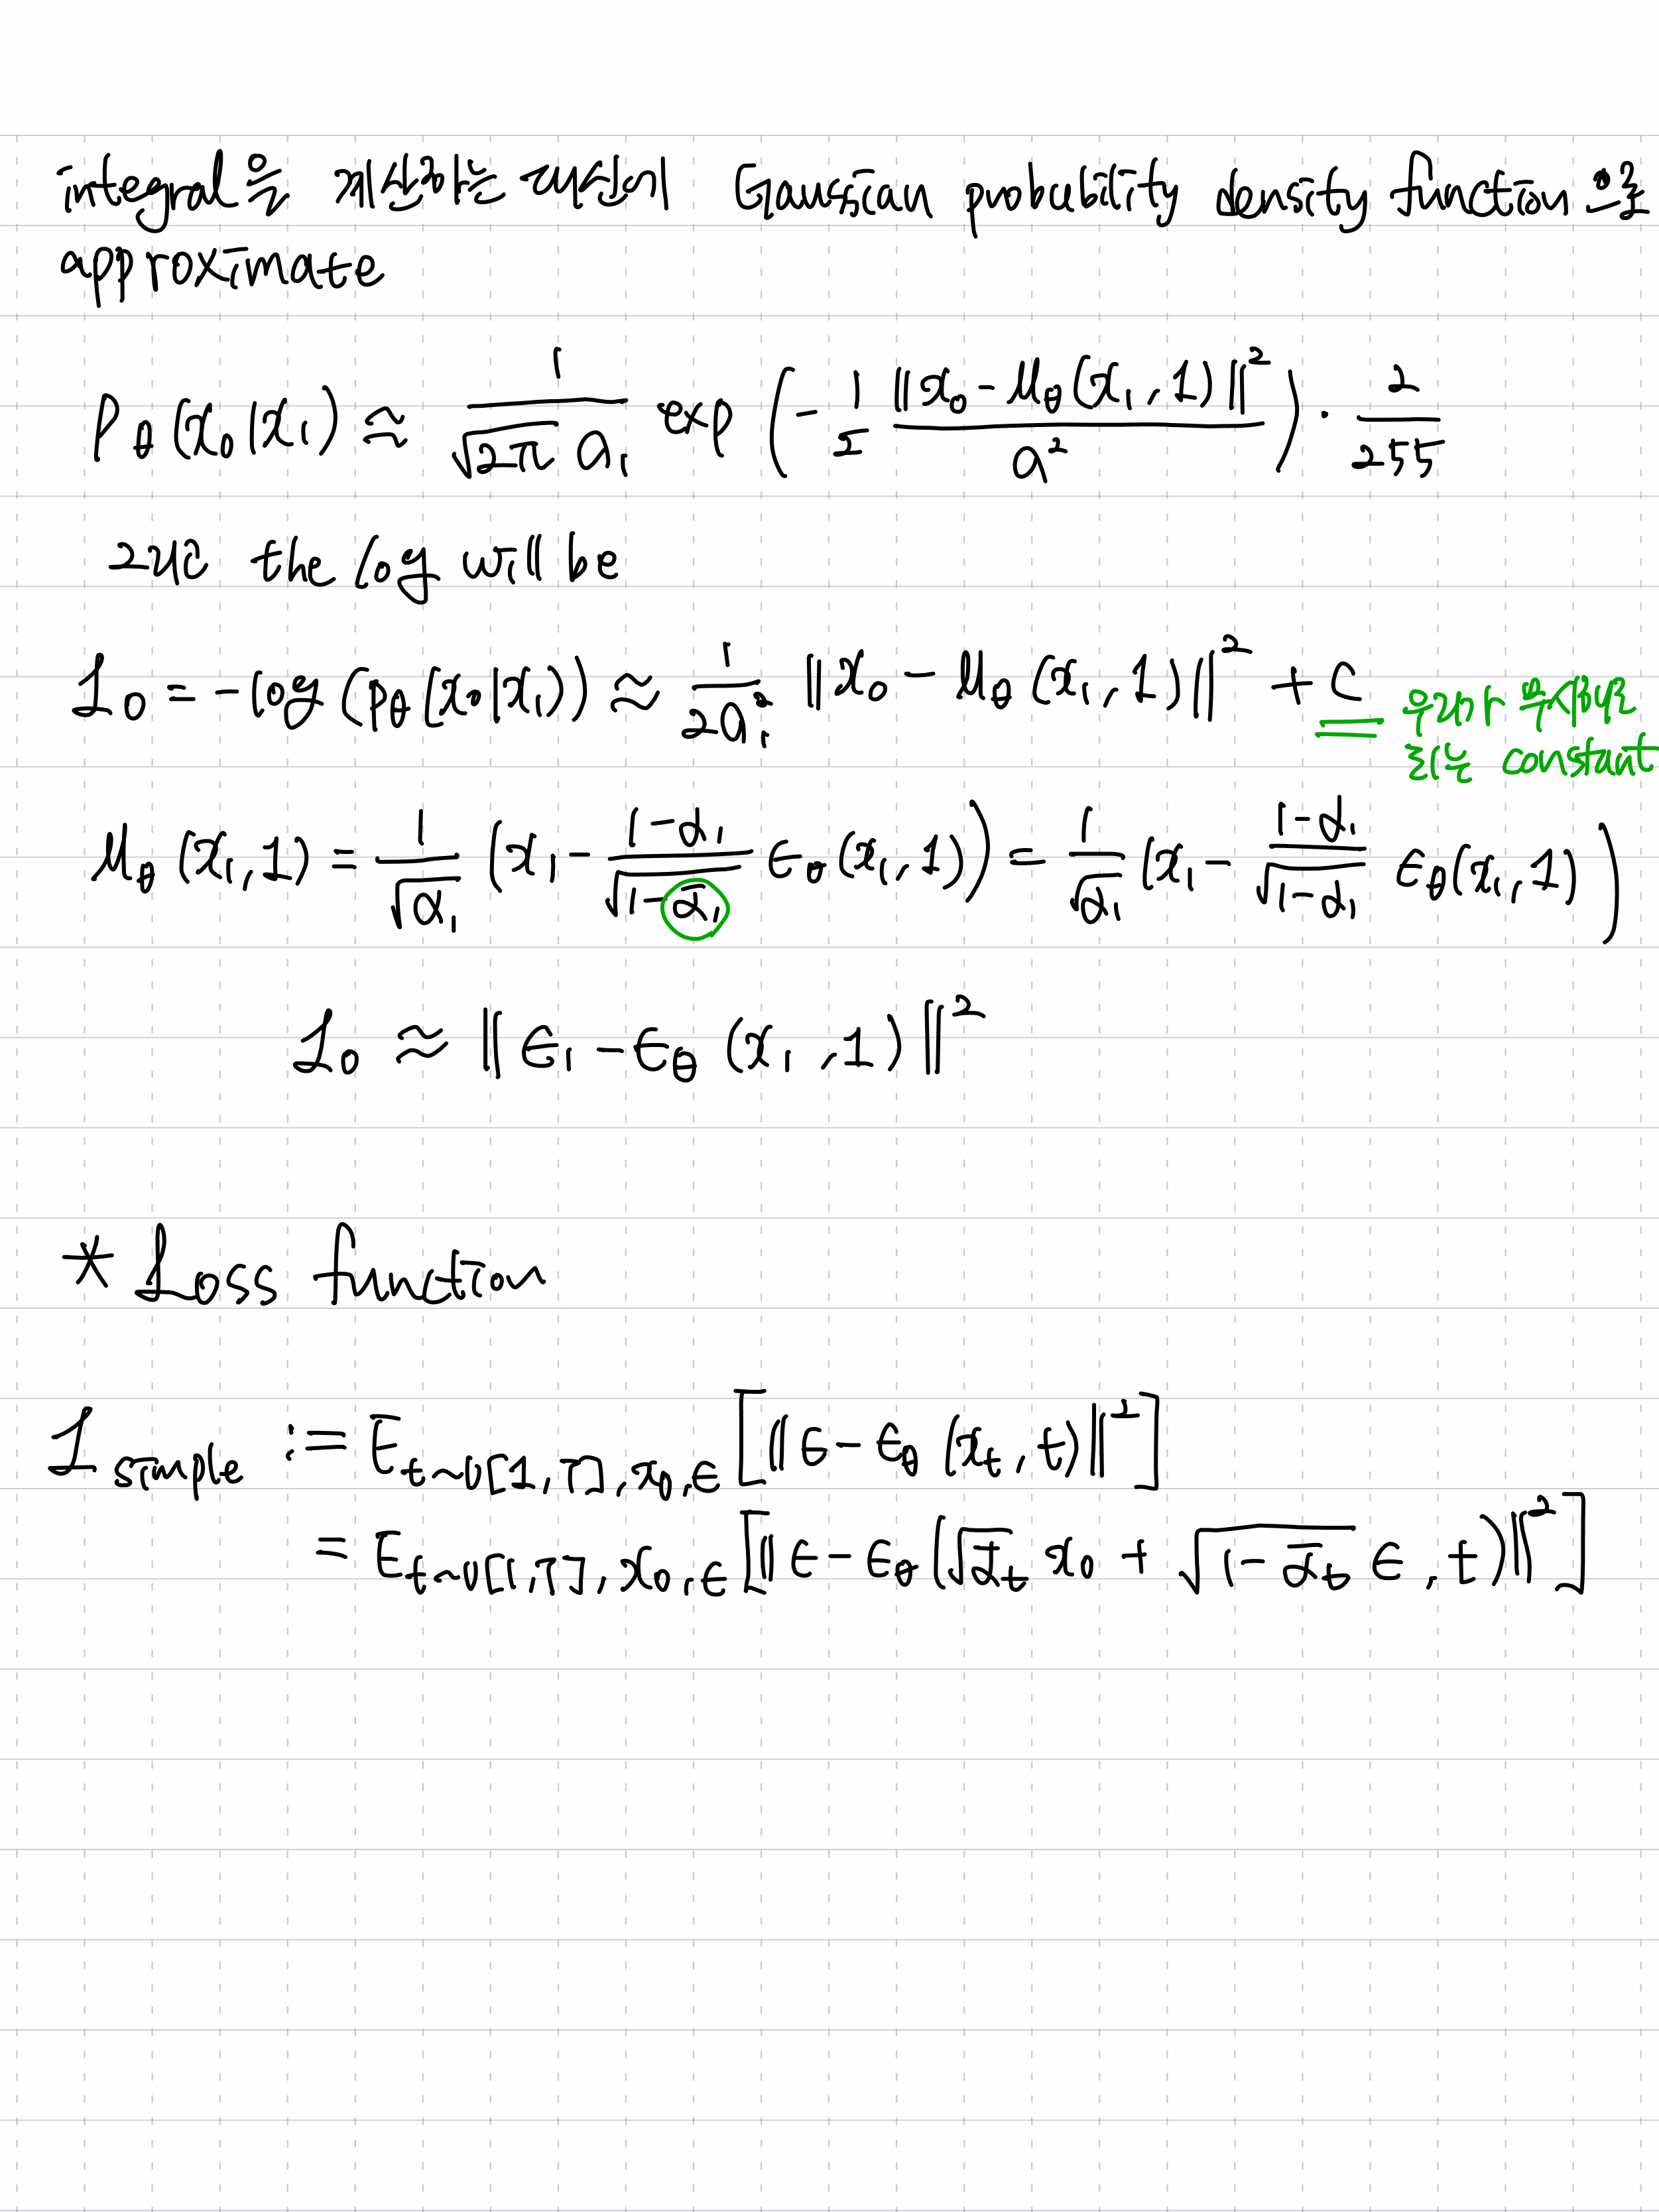 integral을 계산하는 대신에 Gaussian probability density function으로
approximate
Pθ(x₀|x₁) ≈ 1/(√(2π) a₁) exp(-1/2 ‖x₀-μθ(x₁,1)‖²/a²) · 2/255
그러면 the log will be
L₀ = -log(pθ(x₀|x₁)) ≈ 1/(2a₁²) ‖x₀ - μθ(x₁,1)‖² + C
우리가 무시해버려도
되는 constant
μθ(x₁,1) = 1/√α₁ (x₁ - (1-α₁)/√(1-ᾱ₁) εθ(x₁,1)) = 1/√α₁ (x₁ - (1-α₁)/√(1-α₁) εθ(x₁,1))
L₀ ≈ ‖ε₁ - εθ(x₁,1)‖²
* Loss function
L simple := E t~U[1,T],x₀,ε [‖ε - εθ(x_t,t)‖²]
= E t~U[1,T],x₀,ε [‖ε - εθ(√ᾱ_t x₀ + √(1-ᾱ_t) ε,t)‖²]